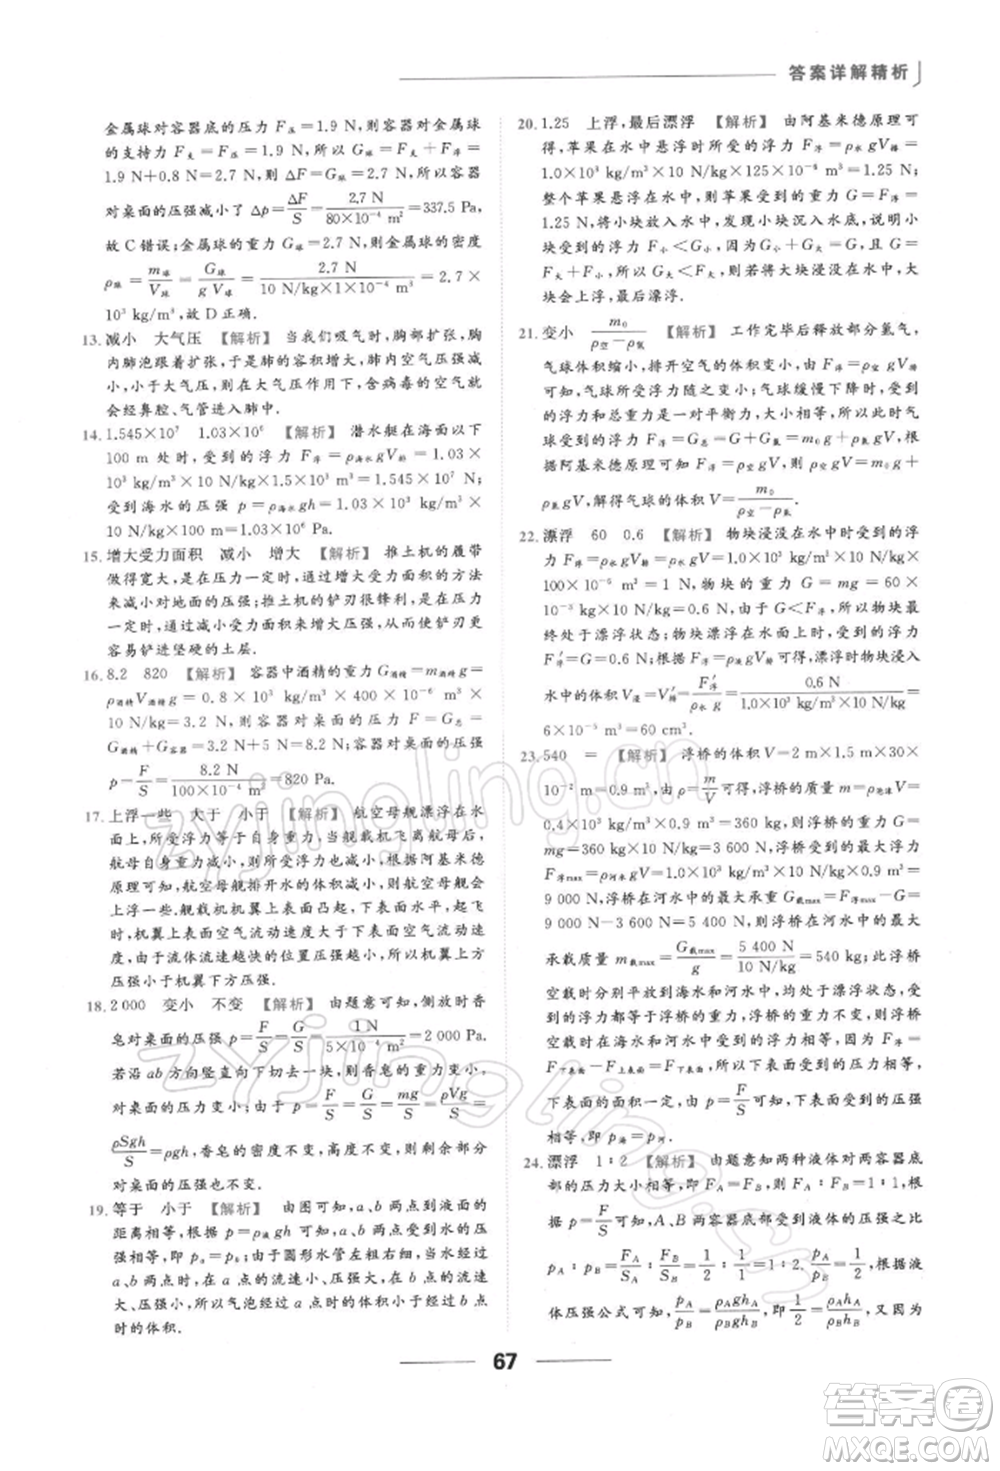 答案详解精析
金属球对容器底的压力 F压=1.9 N,则容器对金属球
的支持力 F支=F压=1.9 N,所以 G球=F支+F浮=
1.9 N+0.8 N=2.7 N,则 ΔF=G球=2.7 N,容器
对桌面的压强减小了 Δp=ΔF/S=2.7 N/(80×10⁻⁴ m²)=337.5 Pa,
故 C 错误;金属球的重力 G球=2.7 N,金属球的密度
ρ球=m球/V球=G球/(g V球)=2.7 N/(10 N/kg×1×10⁻⁴ m³)=2.7×
10³ kg/m³,故 D 正确.
13.减小 大气压 【解析】 当我们吸气时,胸部扩张,胸
内肺泡跟着扩张,于是肺的容积增大,肺内空气压强减
小,在大气压作用下,含病毒的空气就
会经鼻腔、气管进入肺中.
14.1.545×10⁷ 1.03×10⁶ 【解析】 潜水艇在海面以下
100 m 处时,受到的浮力 F浮=ρ海水gV排=1.03×
10³ kg/m³×10 N/kg×1.5×10³ m³=1.545×10⁷ N;
受到海水的压强 p=ρ海水gh=1.03×10³ kg/m³×
10 N/kg×100 m=1.03×10⁶ Pa.
15.增大受力面积 减小 增大 【解析】 推土机的履带
做得宽大,是在压力一定时,通过增大受力面积的方法
来减小对地面的压强;推土机的铲刃很锋利,是在压力
一定时,通过减小受力面积来增大压强,从而使铲刃更
容易铲进坚硬的土层.
16.8.2 820 【解析】 容器中酒精的重力 G酒精=m酒精g=
ρ酒精V酒精g=0.8×10³ kg/m³×400×10⁻⁶ m³×
10 N/kg=3.2 N,则容器对桌面的压力 F=G总=
G酒精+G容器=3.2 N+5 N=8.2 N;容器对桌面的压强
p=F/S=8.2 N/(100×10⁻⁴ m²)=820 Pa.
17.上浮一些 大于 小于 【解析】 航空母舰漂浮在水
面上,所受浮力等于自身重力,舰载机飞离航母后,
航母自重减小,所受浮力减小,根据阿基米德
原理可知,航空母舰排开水的体积减小,所以航母将
上浮一些.舰载机机翼上表面凸起,起飞
时,机翼上表面空气流动速度大于下表面空气流动速
度,由于流体流速越快的位置压强越小,所以机翼上方
压强小于机翼下方压强.
18.2 000 变小 不变 【解析】 由题意可知,侧放时香
皂对桌面的压强 p=F/S=G/S=1 N/(5×10⁻⁴ m²)=2 000 Pa.
若沿 ab 方向竖直向下切去一块,则香皂的重力变小,
对桌面的压力变小;由于 p=F/S=G/S=mg/S=ρVg/S=
ρSgh/S=ρgh,香皂的密度不变,高度不变,则剩余部分
对桌面的压强也不变.
19.等于 小于 【解析】 由图可知,a、b 两点到液面的
距离相等,根据 p=ρgh 可知,a、b 两点受到的液体
压强相等,即 pa=pb;由于圆形水管左粗右细,当水流
动时,a 点的流速小、压强大,b 点的流速大、
压强小,所以气泡在 a 点时的体积小于在 b 点
时的体积.
20.1.25 上浮,最后漂浮 【解析】 由阿基米德原理可
得,苹果在水中悬浮时所受的浮力 F浮=ρ水gV排=
1.0×10³ kg/m³×10 N/kg×125×10⁻⁶ m³=1.25 N;
整个苹果悬浮在水中,则苹果的重力 G=F浮=
1.25 N.将小块放入水中,发现小块沉入水底,说明小
块受到的浮力 F小<G小,由于 G大=G−G小,F大=
F浮−F小,所以 F大>G大,则大块浸没在水中后,大
块会上浮,最后漂浮.
21.变小 m₀/(ρ空−ρ氦) 【解析】 工作完毕后释放部分氦气,
气球体积缩小,排开空气的体积变小,根据 F浮=ρ空gV排
可知,气球所受浮力随之变小;气球缓慢下降时,受到
的浮力和总重力是一对平衡力,大小相等,所以此时气
球受到的浮力 F浮=G总=G氦+G₀=ρ氦gV+m₀g,根
据阿基米德原理可知 F浮=ρ空gV,所以 ρ空gV=m₀g+
ρ氦gV,解得气球的体积 V=m₀/(ρ空−ρ氦).
22.漂浮 60 0.6 【解析】 物块浸没在水中时受到的浮
力 F浮=ρ水gV排=ρ水gV=1.0×10³ kg/m³×10 N/kg×
100×10⁻⁶ m³=1 N,物块的重力 G=mg=60×
10⁻³ kg×10 N/kg=0.6 N,由于 G<F浮,所以物块最
终处于漂浮状态.物块漂浮在水面上时,受到的浮力
F′浮=G=0.6 N;根据 F浮=ρ液gV排可得,此时物块浸入
水中的体积 V浸=V′排=F′浮/(ρ水g)=0.6 N/(1.0×10³ kg/m³×10 N/kg)=
6×10⁻⁵ m³=60 cm³.
23.540 = 【解析】 浮桥的体积 V=2 m×1.5 m×30×
10⁻² m=0.9 m³,根据 ρ=m/V可得,浮桥的质量 m=ρ泡沫V=
0.4×10³ kg/m³×0.9 m³=360 kg,则浮桥的重力 G=
mg=360 kg×10 N/kg=3 600 N,浮桥受到的最大浮力
F浮max=ρ河水gV=1.0×10³ kg/m³×10 N/kg×0.9 m³=
9 000 N,浮桥在河水中的最大载重 G载max=F浮max−G=
9 000 N−3 600 N=5 400 N,则浮桥在河水中的最大
承载质量 m载max=G载max/g=5 400 N/(10 N/kg)=540 kg;浮桥
空载时分别平放在海水和河水中,均处于漂浮状态,浮
桥受到的浮力都等于浮桥的重力,由于浮桥的重力不变,所以浮桥
空载时在海水和河水中受到的浮力相等,因为 F浮=
F下表面−F上表面=F下表面,所以浮桥
下表面受到的压力相等,根据 p=F/S可知,受到的压强
相等,即 p海=p河.
24.漂浮 1∶2 【解析】 由题意知两种液体对容器底部
的压力大小相等,即 FA=FB,则 FA∶FB=1∶1,根
据 p=F/S可知,A、B 两容器底部受到的液体的压强之比为
pA∶pB=FA/SA∶FB/SB=1/2∶1/1=1∶2,根据液
体压强公式可知,pA/pB=ρAghA/ρBghB,即1/2=ρAghA/ρBghB,
67
zyjingling.cn
zyjingling.cn
答案圈
MXQE.COM